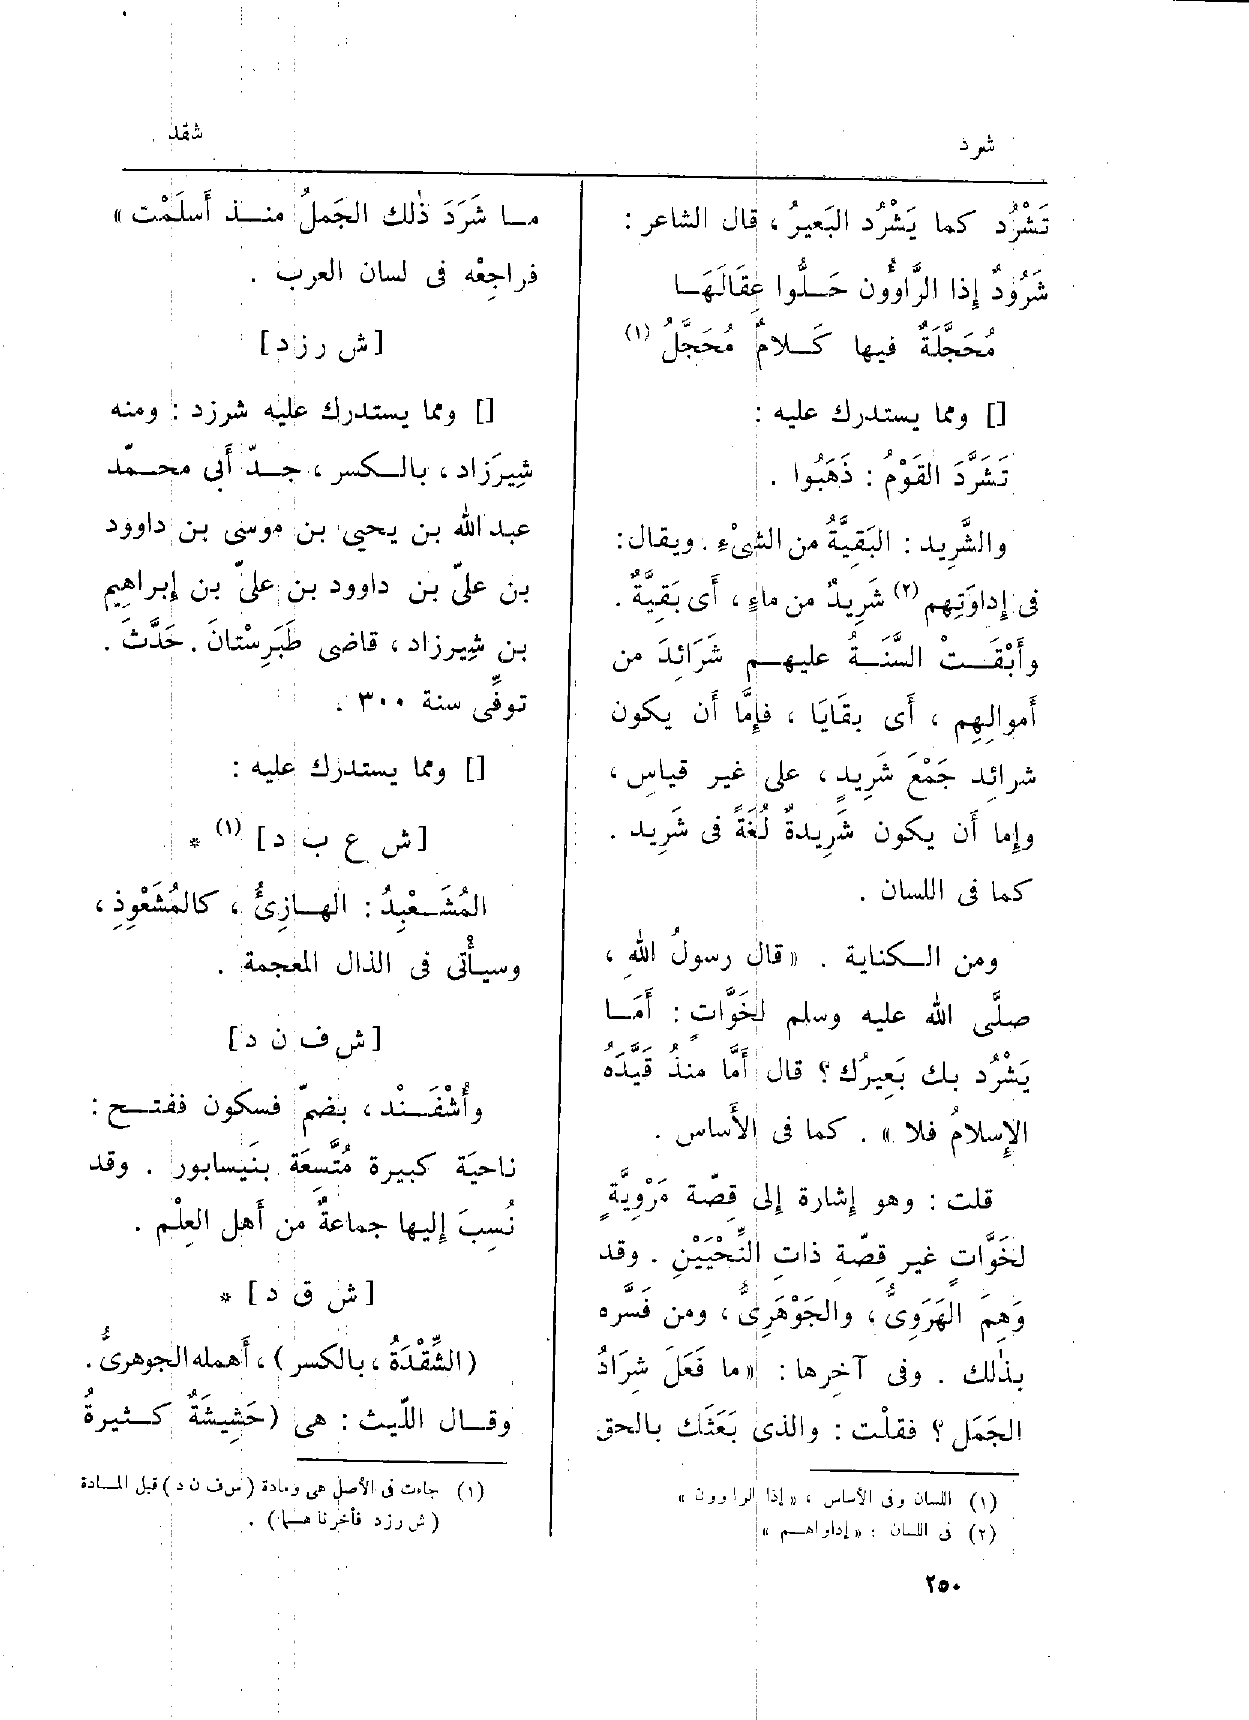 شرد
شقد
تَشْرُد كما يَشْرُد البَعيرُ ، قال الشاعر :
شَرُودٌ إذا الرَّاوُون حَلُّوا عِقَالَهَا
مُحَجَّلَةٌ فيها كَلامٌ مُحَجَّلُ (١)
[] ومما يستدرك عليه :
تَشَرَّدَ القَوْمُ : ذَهَبُوا .
والشَّرِيد : البَقِيَّةُ من الشىْءِ . ويقال :
فى إداوَتِهم (٢) شَرِيدٌ من ماءٍ ، أَى بَقِيَّةٌ .
وأَبْقَت السَّنَةُ عليهم شَرَائدَ من
أَموالِهِم ، أَى بقَايَا ، فإِمَّا أَن يكون
شرائِد جَمْعَ شَرِيدٍ ، على غير قياس ،
وإِما أَن يكون شَرِيدةٌ لُغَةً فى شَرِيد .
كما فى اللسان .
ومن الكناية . « قال رسولُ اللهِ ،
صلَّى الله عليه وسلم لخَوَّاتٍ : أَمَا
يَشْرُد بك بَعِيرُك ؟ قال أَمَّا منذُ قَيَّدَهُ
الإِسلامُ فلا » . كما فى الأَساس .
قلت : وهو إِشارة إِلى قِصّة مَرْوِيَّةٍ
لخَوَّاتٍ غير قِصّةِ ذاتِ النِّحْيَيْنِ . وقد
وَهِمَ الهَرَوِىُّ ، والجَوْهَرِىُّ ، ومن فَسَّره
بذٰلك . وفى آخِرها : « ما فَعَلَ شِرَادُ
الجَمَل ؟ فقلْت : والذى بَعَثَك بالحق
(١) اللسان وفى الأساس ، « إذا الراوون »
(٢) فى اللسان : « إداواهم »
ما شَرَدَ ذٰلك الجَملُ منذ أَسلَمْت »
فراجِعْه فى لسان العرب .
[ش رزد]
[] ومما يستدرك عليه شرزد : ومنه
شِيرَزاد ، بالكسر ، جدّ أَبى محمّد
عبد الله بن يحيى بن موسى بن داوود
بن علىّ بن داوود بن علىّ بن إِبراهِيم
بن شِيرزاد ، قاضى طَبَرِسْتانَ . حَدَّثَ .
توفِّى سنة ٣٠٠ .
[] ومما يستدرك عليه :
[ش ع ب د] (١) *
المُشَعْبِدُ : الهازِئُ ، كالمُشَعْوِذِ ،
وسيأْتى فى الذال المعجمة .
[ش ف ن د]
وأُشْفَنْد ، بضمّ فسكون ففتح :
ناحيَة كبيرة مُتَّسِعَة بنَيسابور . وقد
نُسِبَ إِليها جماعةٌ من أَهل العِلْم .
[ش ق د] *
(الشِّقْدَةُ ، بالكسر) ، أَهمله الجوهرىُّ .
وقال اللَّيث : هى (حَشِيشَةٌ كثيرةُ
(١) جاءت فى الأصل هى ومادة (س ف ن د) قبل المادة
(ش رزد فأخرناهما) .
٢٥٠